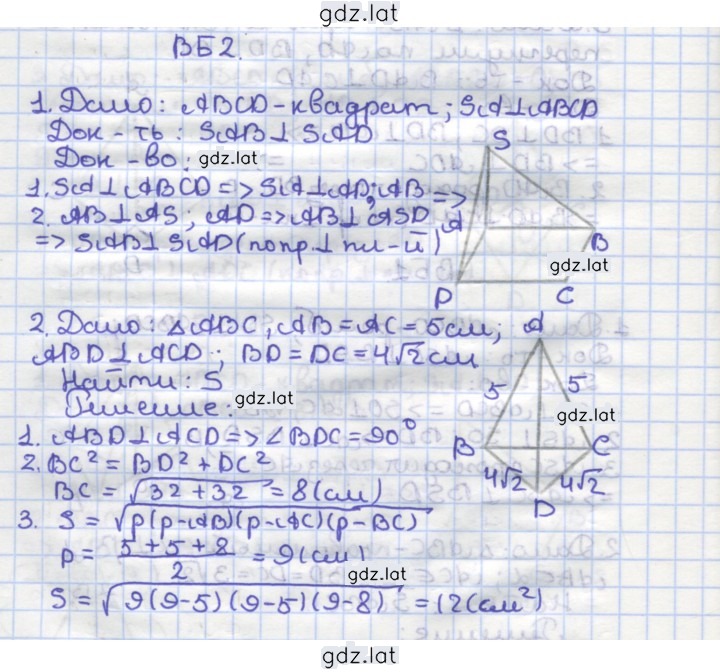 gdz.lat
ВБ2.
1. Дано: ABCD - квадрат; SA⊥ABCD
Док-ть: SAB⊥SAD
Док-во: gdz.lat
1. SA⊥ABCD => SA⊥AD; AB =>
2. AB⊥AS; AD => AB⊥ASD
=> SAB⊥SAD (по пр. ⊥ пл-й)
S
A
B
gdz.lat
D
C
2. Дано: △ABC, AB=AC=5см;
ABD⊥ACD; BD=DC=4√2см
Найти: S
gdz.lat
Решение:
1. ABD⊥ACD => ∠BDC=90°
2. BC²=BD²+DC²
BC=√32+32=8(см)
3. S=√p(p-AB)(p-AC)(p-BC)
p= 5+5+8/2 =9(см)
gdz.lat
S=√9(9-5)(9-5)(9-8)=12(см²)
A
5
5
gdz.lat
B
C
4√2
4√2
D
gdz.lat